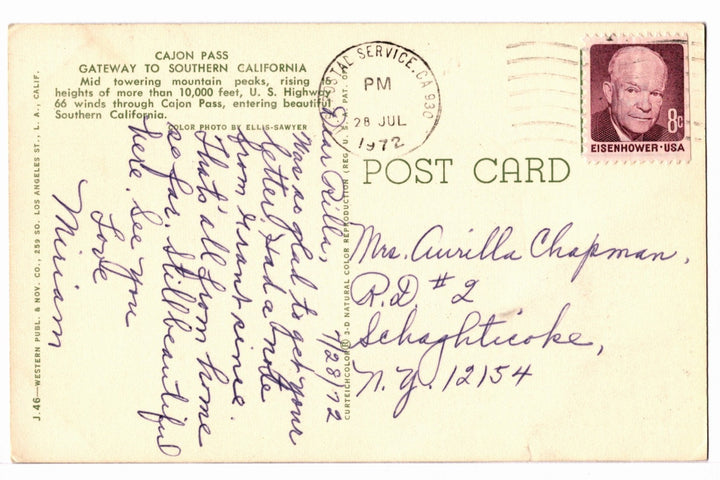 CAJON PASS
GATEWAY TO SOUTHERN CALIFORNIA
Mid towering mountain peaks, rising to
heights of more than 10,000 feet, U. S. Highway
66 winds through Cajon Pass, entering beautiful
Southern California.
COLOR PHOTO BY ELLIS-SAWYER
J.46—WESTERN PUBL. & NOV. CO., 259 SO. LOS ANGELES ST., L. A., CALIF.
POSTAL SERVICE, CA 930
PM
28 JUL
1972
8c
EISENHOWER·USA
POST CARD
CURTEICHCOLOR® 3-D NATURAL COLOR REPRODUCTION (REG. U. S. A. PAT. OFF.
7/28/72
Dear Rilla,
Was so glad to get your
letter. Had a note
from Grant since.
That's all from home
so far. Still beautiful
here. See you
Love
Miriam
Mrs. Aurilla Chapman,
R.D. #2
Schaghticoke,
N.Y. 12154